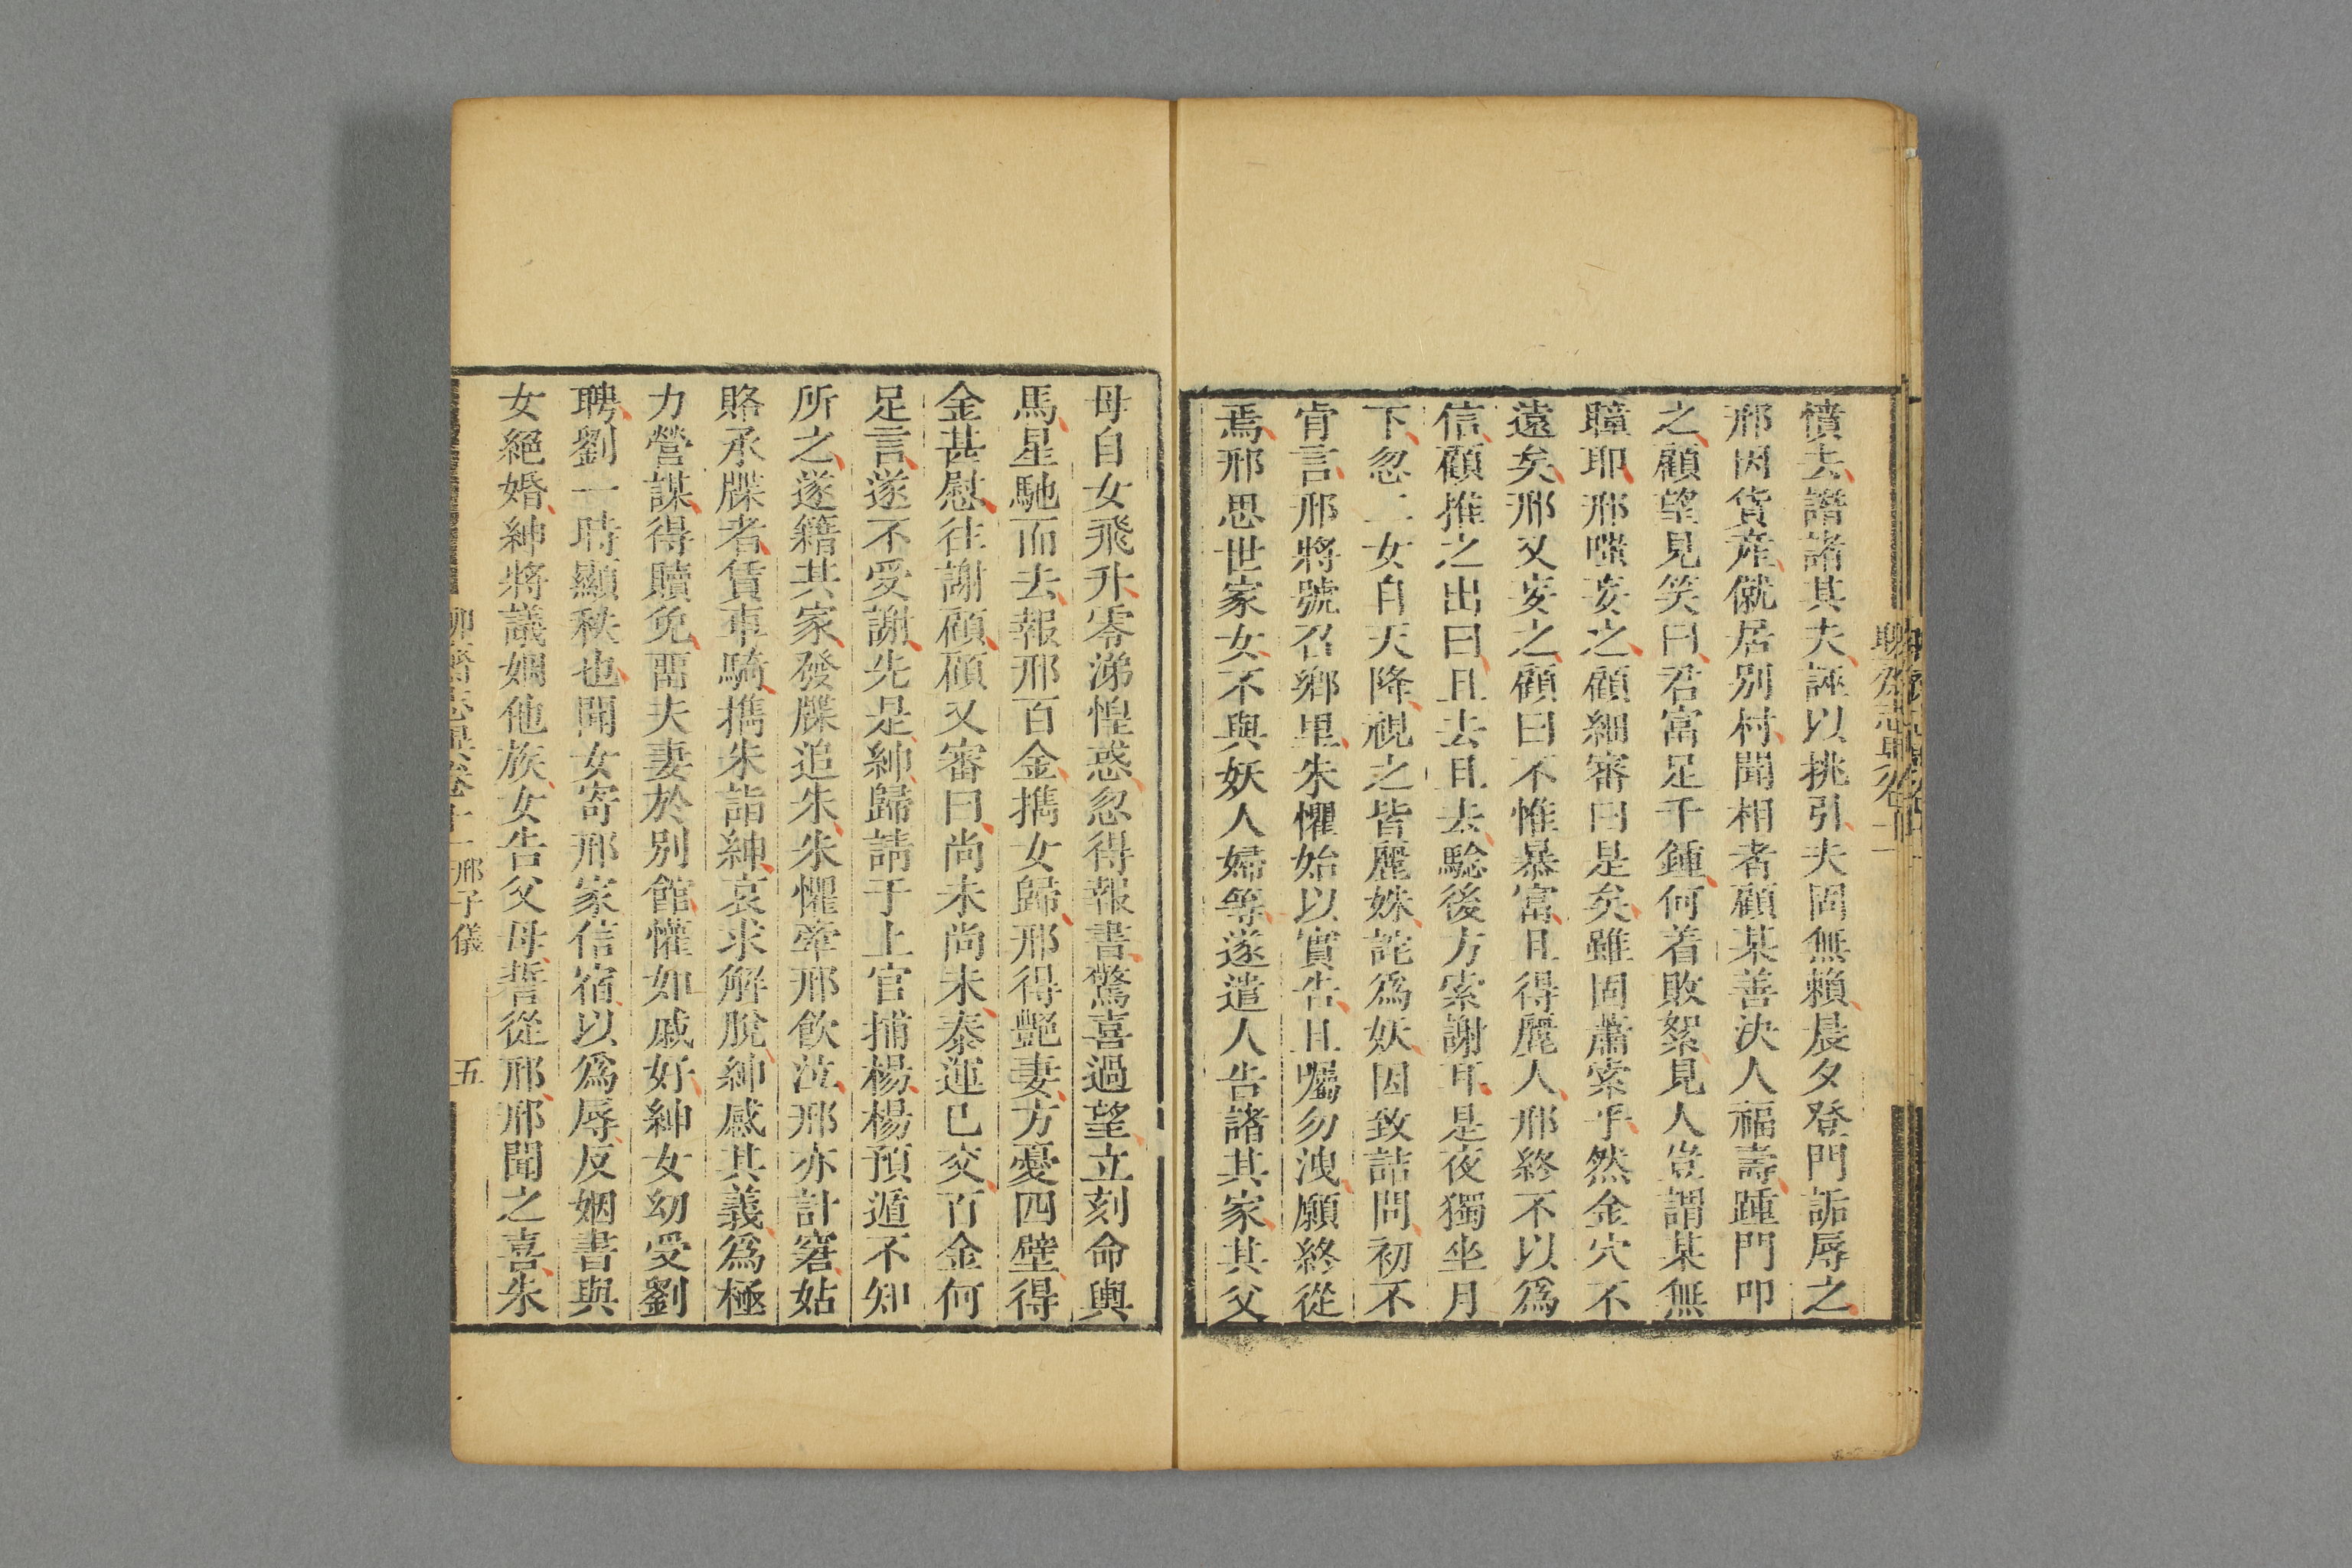 憤去譖諸其夫誣以挑引夫固無賴晨夕登門詬辱之
邢因貨產僦居別村聞相者顧某善決人福壽踵門叩
之顧望見笑曰君富足千鍾何着敗絮見人豈謂某無
瞳耶邢嗤妄之顧細審曰是矣雖固蕭索乎然金穴不
遠矣邢又妄之顧曰不惟暴富且得麗人邢終不以爲
信顧推之出曰且去且去騐後方索謝耳是夜獨坐月
下忽二女自天降視之皆麗姝詫爲妖因致詰問初不
肯言邢將號召鄉里朱懼始以實告且囑勿洩願終從
焉邢思世家女不與妖人婦等遂遣人告諸其家其父
母自女飛升零涕惶惑忽得報書驚喜過望立刻命輿
馬星馳而去報邢百金擕女歸邢得艷妻方憂四壁得
金甚慰往謝顧顧又審曰尚未尚未泰運已交百金何
足言遂不受謝先是紳歸請于上官捕楊楊預遁不知
所之遂籍其家發牒追朱朱懼牽邢飲泣邢亦計窘姑
賂承牒者賃車騎擕朱詣紳哀求解脫紳感其義爲極
力營謀得贖免畱夫妻於別館懽如戚好紳女幼受劉
聘劉一時顯秩也聞女寄邢家信宿以爲辱反姻書與
女絕婚紳將議姻他族女告父母誓從邢邢聞之喜朱
聊齋志異卷十一 邢子儀 五